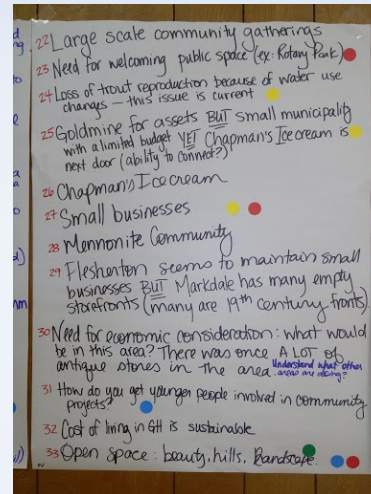 22 Large scale community gatherings
23 Need for welcoming public space (ex: Rotary Park)
24 Loss of trout reproduction because of water use
changes - this issue is current
25 Goldmine for assets BUT small municipality
with a limited budget YET Chapman's Ice cream is
next door (ability to connect?)
26 Chapman's Ice cream
27 Small businesses
28 Mennonite Community
29 Flesherton seems to maintain small
businesses BUT Markdale has many empty
storefronts (many are 19th century fronts)
30 Need for economic consideration: what would
be in this area? There was once A LOT of
antique stores in the area
Understand what other
areas are doing?
31 How do you get younger people involved in community
projects?
32 Cost of living in GH is sustainable
33 Open space: beauty, hills, landscape